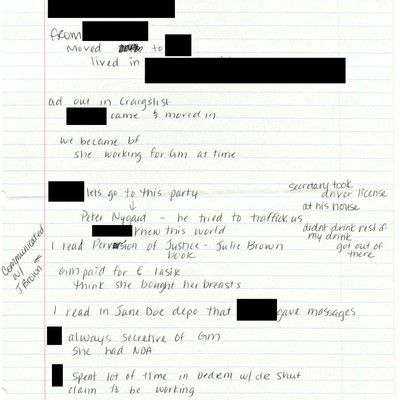 from
moved to
lived in
ad out in Craigslist
came & moved in
we became bf
she working for GM at time
lets go to this party
secretary took driver license
at his house
↓
Peter Nygard - he tried to traffick us
knew this world
didnt drink rest of my drink
got out of there
I read Perversion of Justice - Julie Brown
book
Communicated w/ J Brown
GM paid for € lasik
think she bought her breasts
I read in Jane Doe depo that gave massages
always secretive of GM
She had NDA
Spent lot of time in w/ shut
claim to be working